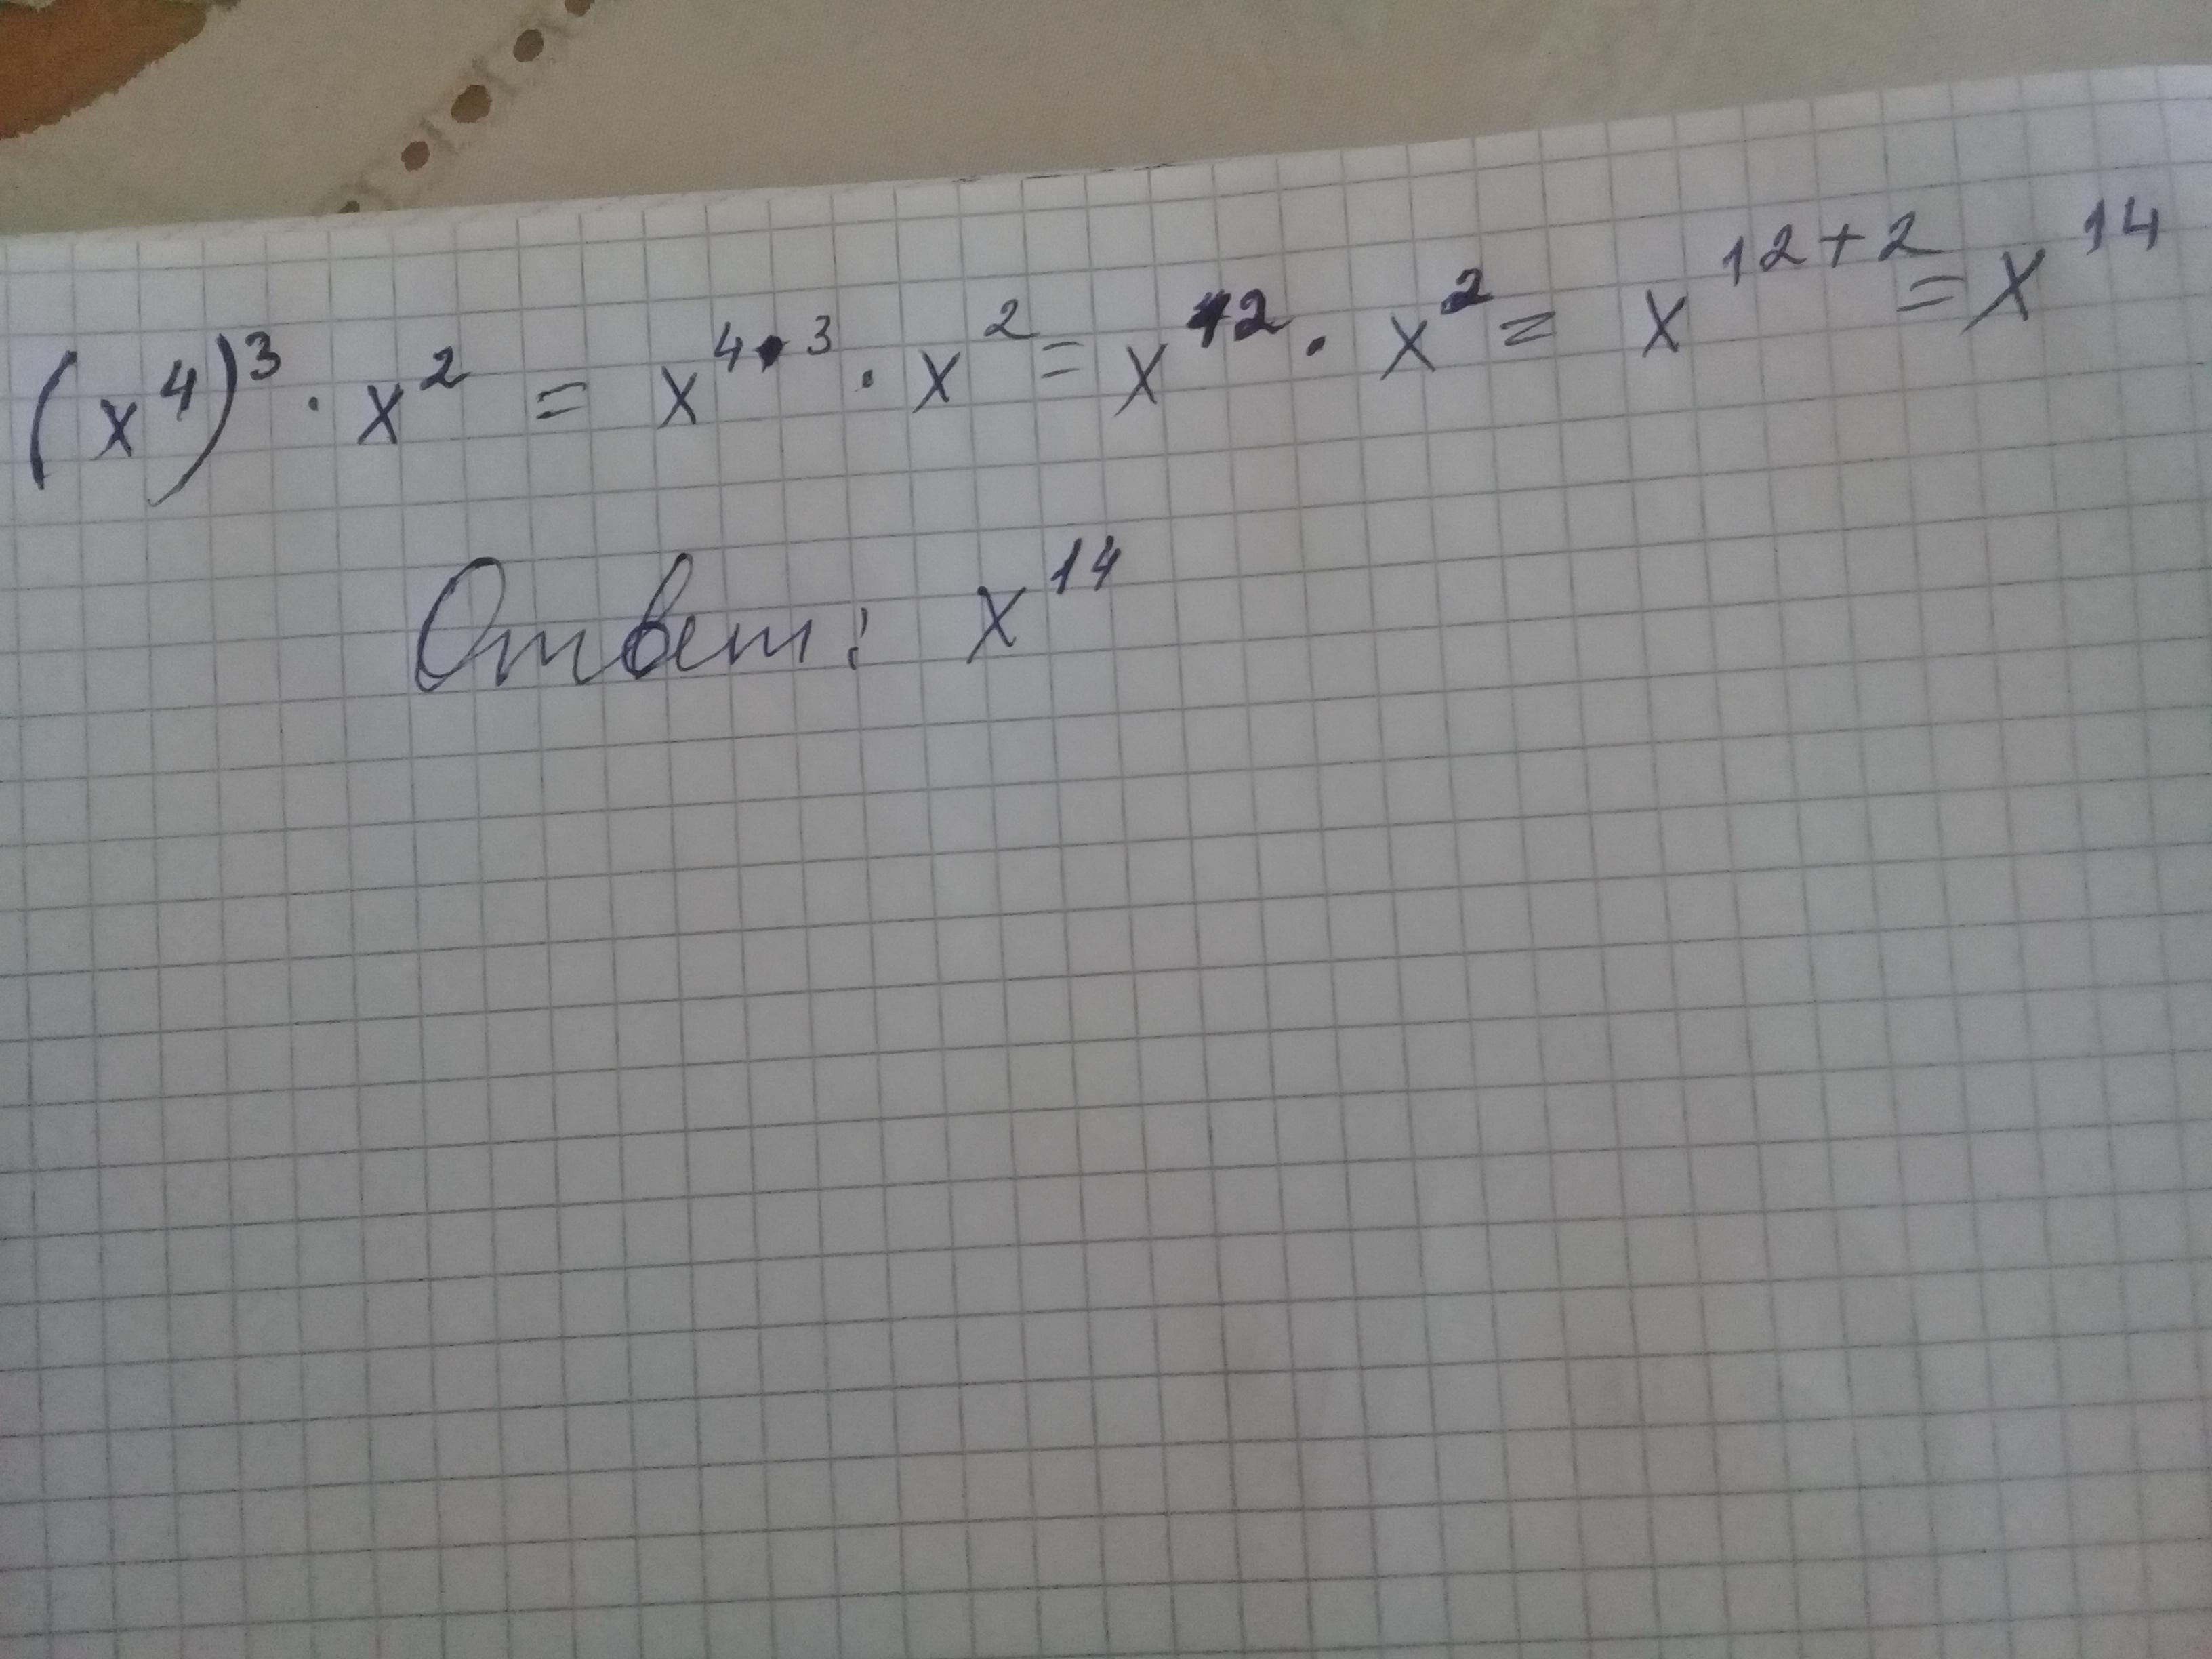 (x⁴)³ · x² = x⁴·³ · x² = x¹² · x² = x¹²⁺² = x¹⁴
Ответ: x¹⁴